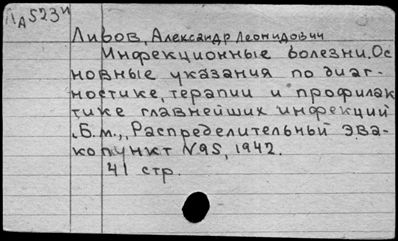 ПА523и
Ливов, Александр Леонидович
Инфекционные болезни. Ос
новные указания по диаг-
ностике, терапии и профилак
тике главнейших инфекций
. Б.м., Распределительный эва-
копункт №95, 1942.
41 стр.